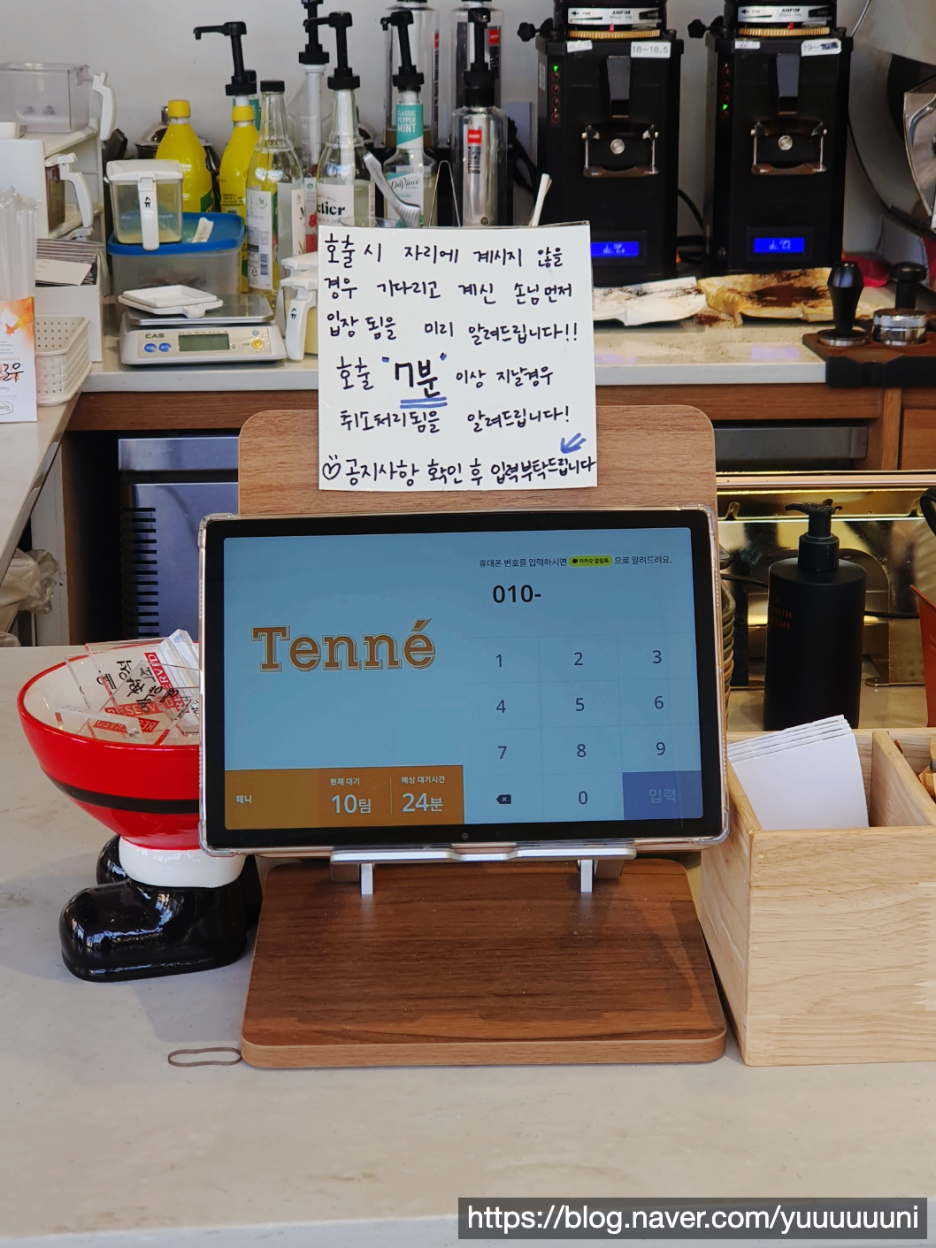 ANFIM
ANFIM
18~18.5
CLASSIC
PEPPER
MINT
DaVinci
CAS
호출 시 자리에 계시지 않을
경우 기다리고 계신 손님먼저
입장 됨을 미리 알려드립니다!!
호출 "7분" 이상 지날경우
취소처리됨을 알려드립니다!
공지사항 확인 후 입력부탁드립니다
휴대폰 번호를 입력하시면 카카오 알림톡 으로 알려드려요.
010-
Tenné
1 2 3
4 5 6
7 8 9
0 입력
테니
현재 대기 예상 대기시간
10팀 24분
https://blog.naver.com/yuuuuuuni